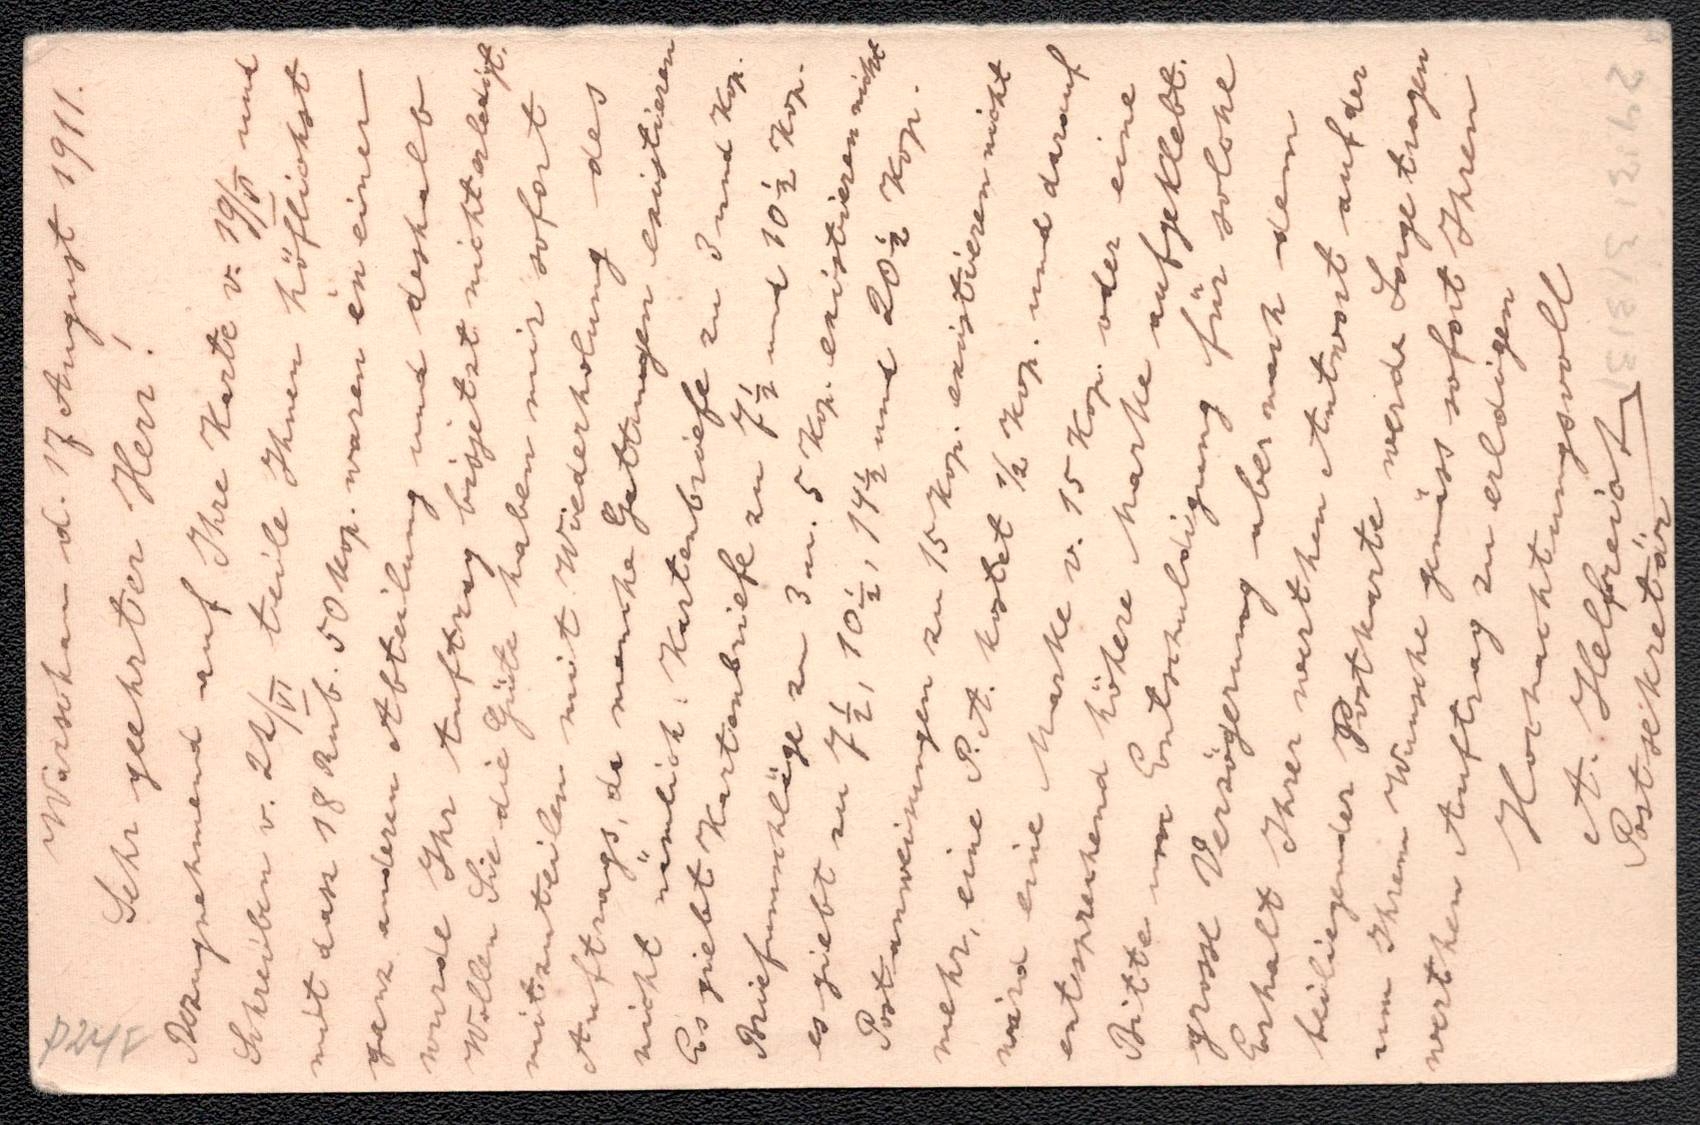 Warschau d. 17 August 1911.
Sehr geehrter Herr!
Bezugnehmend auf Ihre Karte v. 19/VI und
Schreiben v. 22/VI teile Ihnen höflichst
mit dass 18 Rub. 50 Kop. waren in einer
ganz anderen Abteilung und deshalb
wurde Ihr Auftrag bisjetzt nicht erledigt.
Wollen Sie die Güte haben mir sofort
mitzuteilen mit Wiederholung des
Auftrags, da manche Gattungen existieren
nicht nämlich: Kartenbriefe
Es giebt Kartenbriefe zu 3 und Kop.
Briefumschläge zu 7½ und 10½ Kop.
es giebt zu 3 u. 5 Kop. existieren nicht
zu 7½, 10½, 14½ und 20½ Kop.
Postanweisungen zu 15 Kop. existieren nicht
mehr, eine P.A. kostet ½ Kop. und darauf
wird eine Marke v. 15 Kop. oder eine
entsprechend höhere Marke aufgeklebt.
Bitte um Entschuldigung für solche
grosse Verzögerung aber nach dem
Erhalt Ihrer werthen Antwort auf der
beiliegender Postkarte werde Sorge tragen
um Ihrem Wunsche gemäss sofort Ihren
werthen Auftrag zu erledigen
Hochachtungsvoll
A. Helbreich
Postsekretär
P24F